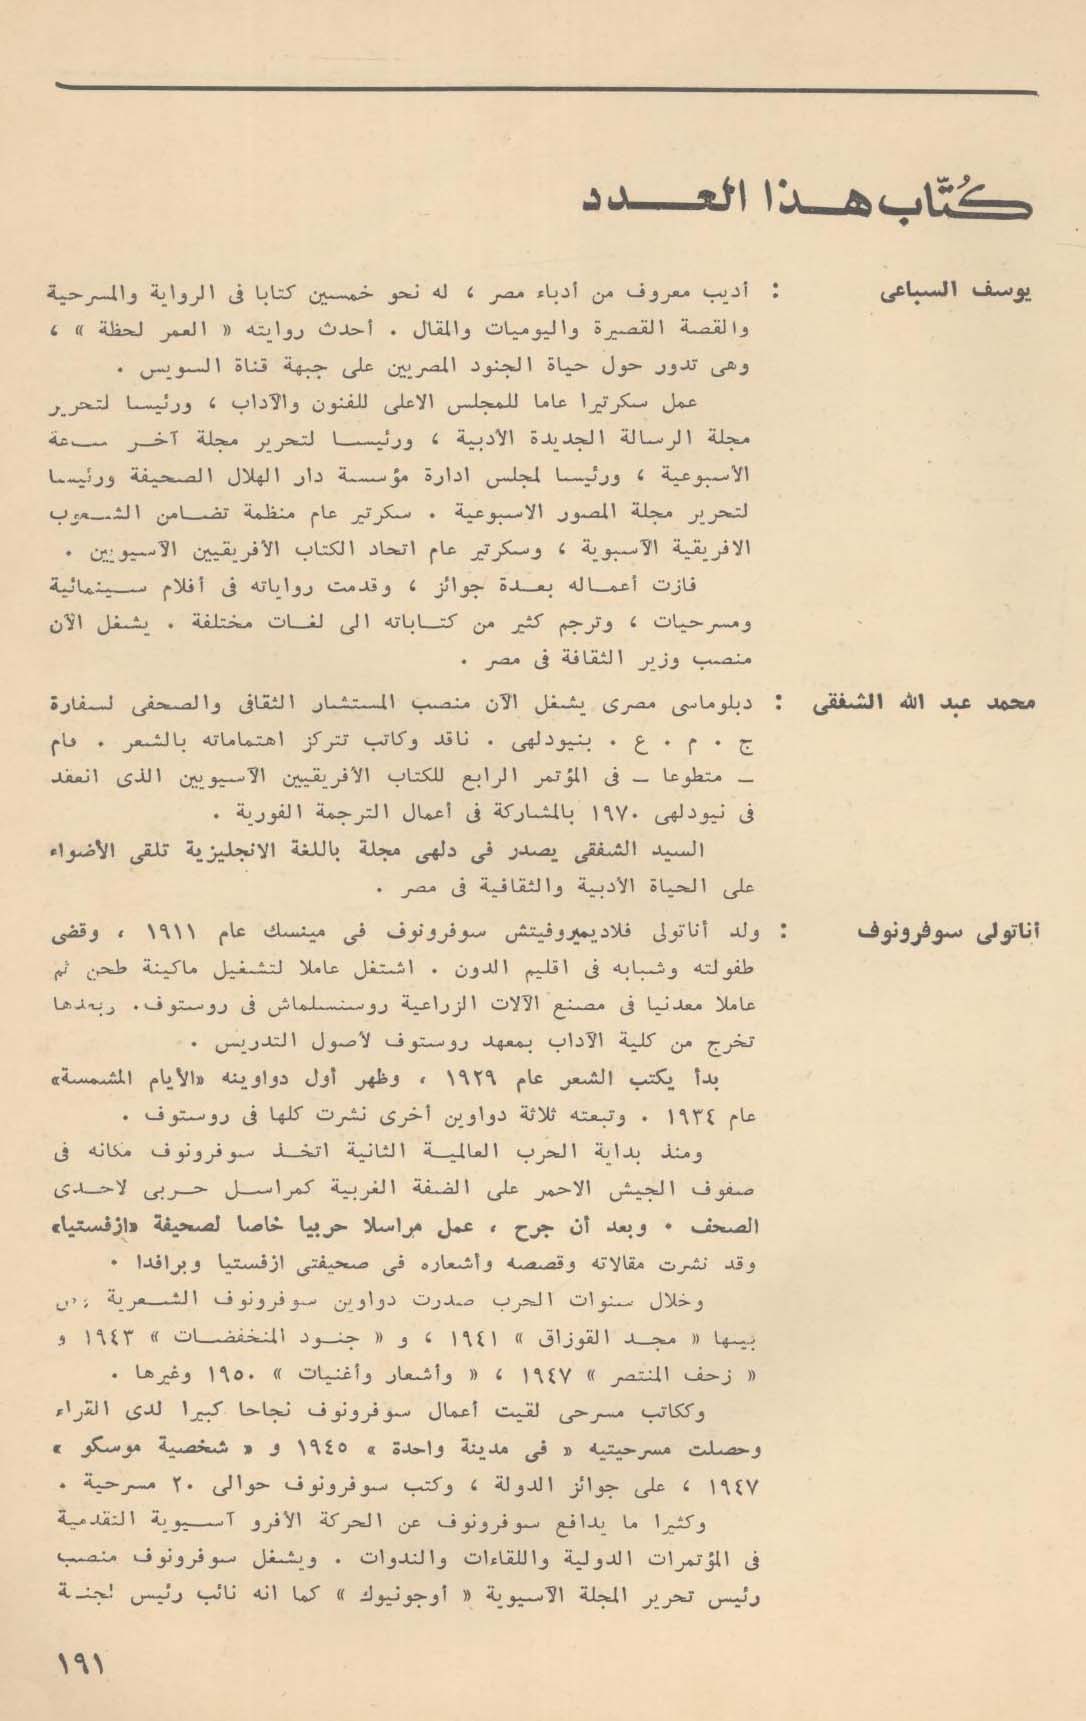 كُتّاب هذا العدد
يوسف السباعى : أديب معروف من أدباء مصر ، له نحو خمسين كتابا فى الرواية والمسرحية
والقصة القصيرة واليوميات والمقال . أحدث روايته « العمر لحظة » ،
وهى تدور حول حياة الجنود المصريين على جبهة قناة السويس .
عمل سكرتيرا عاما للمجلس الاعلى للفنون والآداب ، ورئيسا لتحرير
مجلة الرسالة الجديدة الأدبية ، ورئيسا لتحرير مجلة آخر ساعة
الأسبوعية ، ورئيسا لمجلس ادارة مؤسسة دار الهلال الصحيفة ورئيسا
لتحرير مجلة المصور الاسبوعية . سكرتير عام منظمة تضامن الشعوب
الافريقية الآسبوية ، وسكرتير عام اتحاد الكتاب الأفريقيين الآسيويين .
فازت أعماله بعدة جوائز ، وقدمت رواياته فى أفلام سينمائية
ومسرحيات ، وترجم كثير من كتاباته الى لغات مختلفة . يشغل الآن
منصب وزير الثقافة فى مصر .
محمد عبد الله الشفقى : دبلوماسى مصرى يشغل الآن منصب المستشار الثقافى والصحفى لسفارة
ج . م . ع . بنيودلهى . ناقد وكاتب تتركز اهتماماته بالشعر . قام
— متطوعا — فى المؤتمر الرابع للكتاب الأفريقيين الآسيويين الذى انعقد
فى نيودلهى ١٩٧٠ بالمشاركة فى أعمال الترجمة الفورية .
السيد الشفقى يصدر فى دلهى مجلة باللغة الانجليزية تلقى الأضواء
على الحياة الأدبية والثقافية فى مصر .
أناتولى سوفرونوف : ولد أناتولى فلاديميروفيتش سوفرونوف فى مينسك عام ١٩١١ ، وقضى
طفولته وشبابه فى اقليم الدون . اشتغل عاملا لتشغيل ماكينة طحن ثم
عاملا معدنيا فى مصنع الآلات الزراعية روسنسلماش فى روستوف. وبعدها
تخرج من كلية الآداب بمعهد روستوف لأصول التدريس .
بدأ يكتب الشعر عام ١٩٢٩ ، وظهر أول دواوينه «الأيام المشمسة»
عام ١٩٣٤ . وتبعته ثلاثة دواوين أخرى نشرت كلها فى روستوف .
ومنذ بداية الحرب العالمية الثانية اتخذ سوفرونوف مكانه فى
صفوف الجيش الاحمر على الضفة الغربية كمراسل حربى لاحدى
الصحف . وبعد أن جرح ، عمل مراسلا حربيا خاصا لصحيفة «ازفستيا»
وقد نشرت مقالاته وقصصه وأشعاره فى صحيفتى ازفستيا وبرافدا .
وخلال سنوات الحرب صدرت دواوين سوفرونوف الشعرية ومن
بينها « مجد القوزاق » ١٩٤١ ، و « جنود المنخفضات » ١٩٤٣ و
« زحف المنتصر » ١٩٤٧ ، « وأشعار وأغنيات » ١٩٥٠ وغيرها .
وككاتب مسرحى لقيت أعمال سوفرونوف نجاحا كبيرا لدى القراء
وحصلت مسرحيتيه « فى مدينة واحدة » ١٩٤٥ و « شخصية موسكو »
١٩٤٧ ، على جوائز الدولة ، وكتب سوفرونوف حوالى ٢٠ مسرحية .
وكثيرا ما يدافع سوفرونوف عن الحركة الأفرو آسيوية التقدمية
فى المؤتمرات الدولية واللقاءات والندوات . ويشغل سوفرونوف منصب
رئيس تحرير المجلة الآسيوية « أوجونيوك » كما انه نائب رئيس لجنة
١٩١